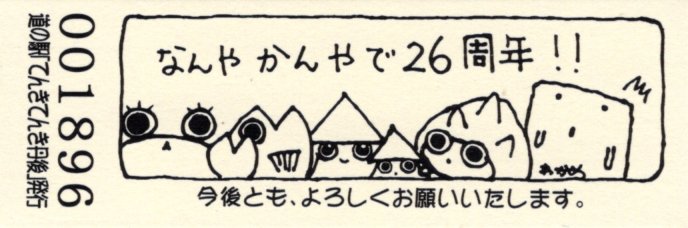 001896
道の駅「てんきてんき丹後」発行
なんやかんやで26周年!!
わかめ
今後とも、よろしくお願いいたします。